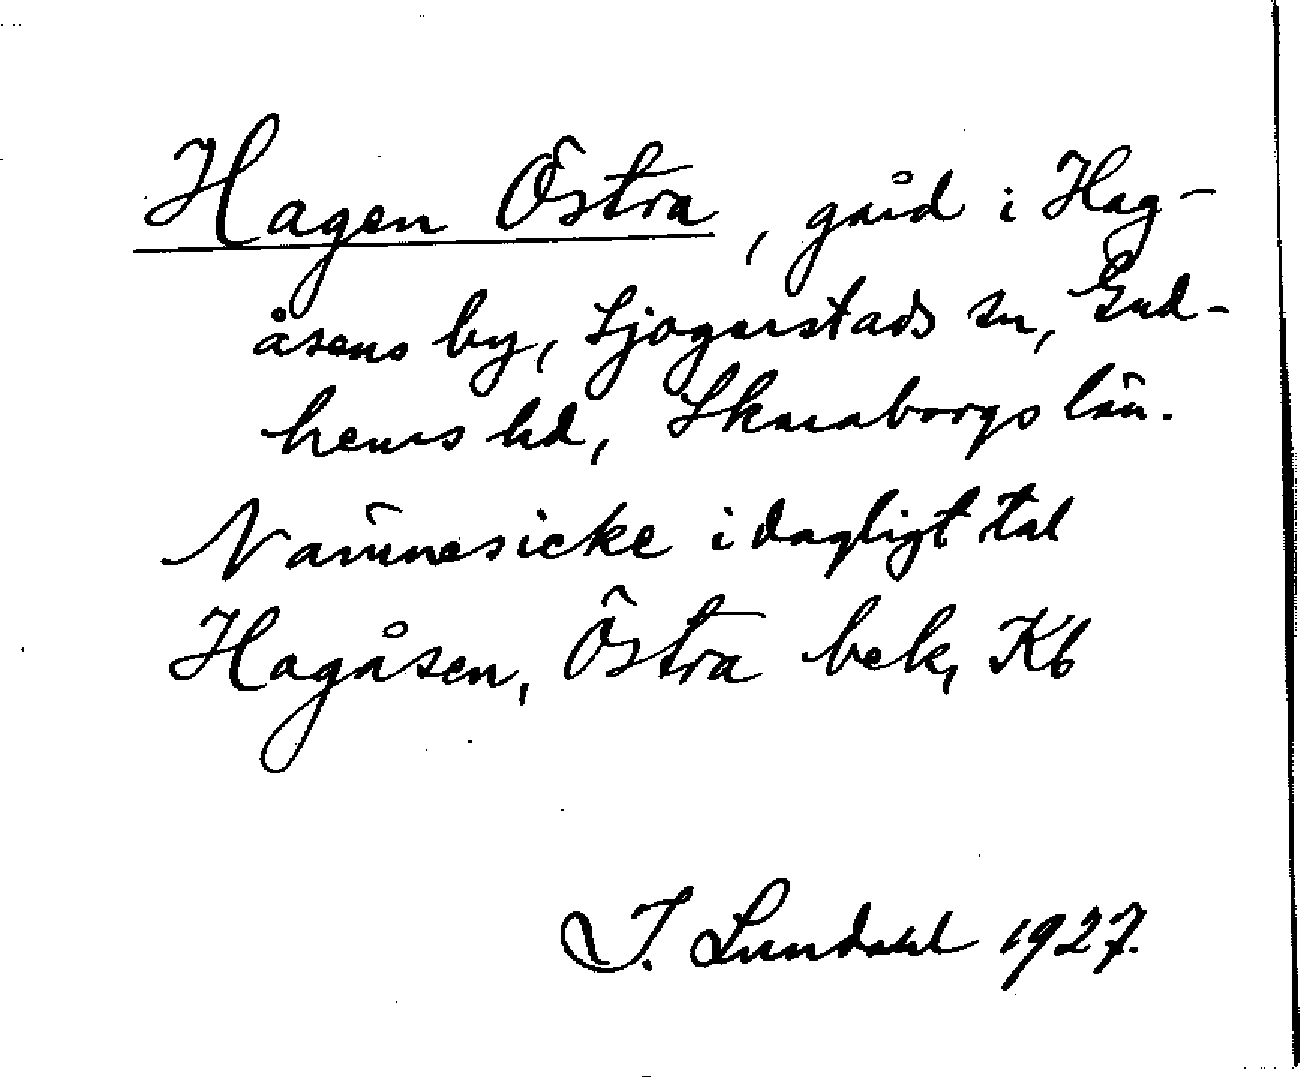 Hagen Östra, gård i Hag-
åsens by, Sjogerstads sn, Gud-
hems hd, Skaraborgs län.
Nämnes icke i dagligt tal
Hagåsen, Östra bek, Kb
I. Lundahl 1927.